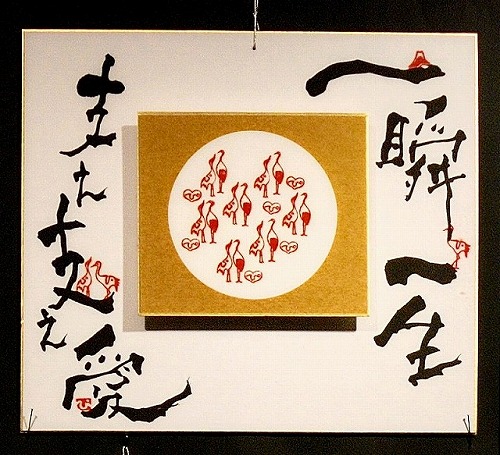 一瞬一生
支え支え愛